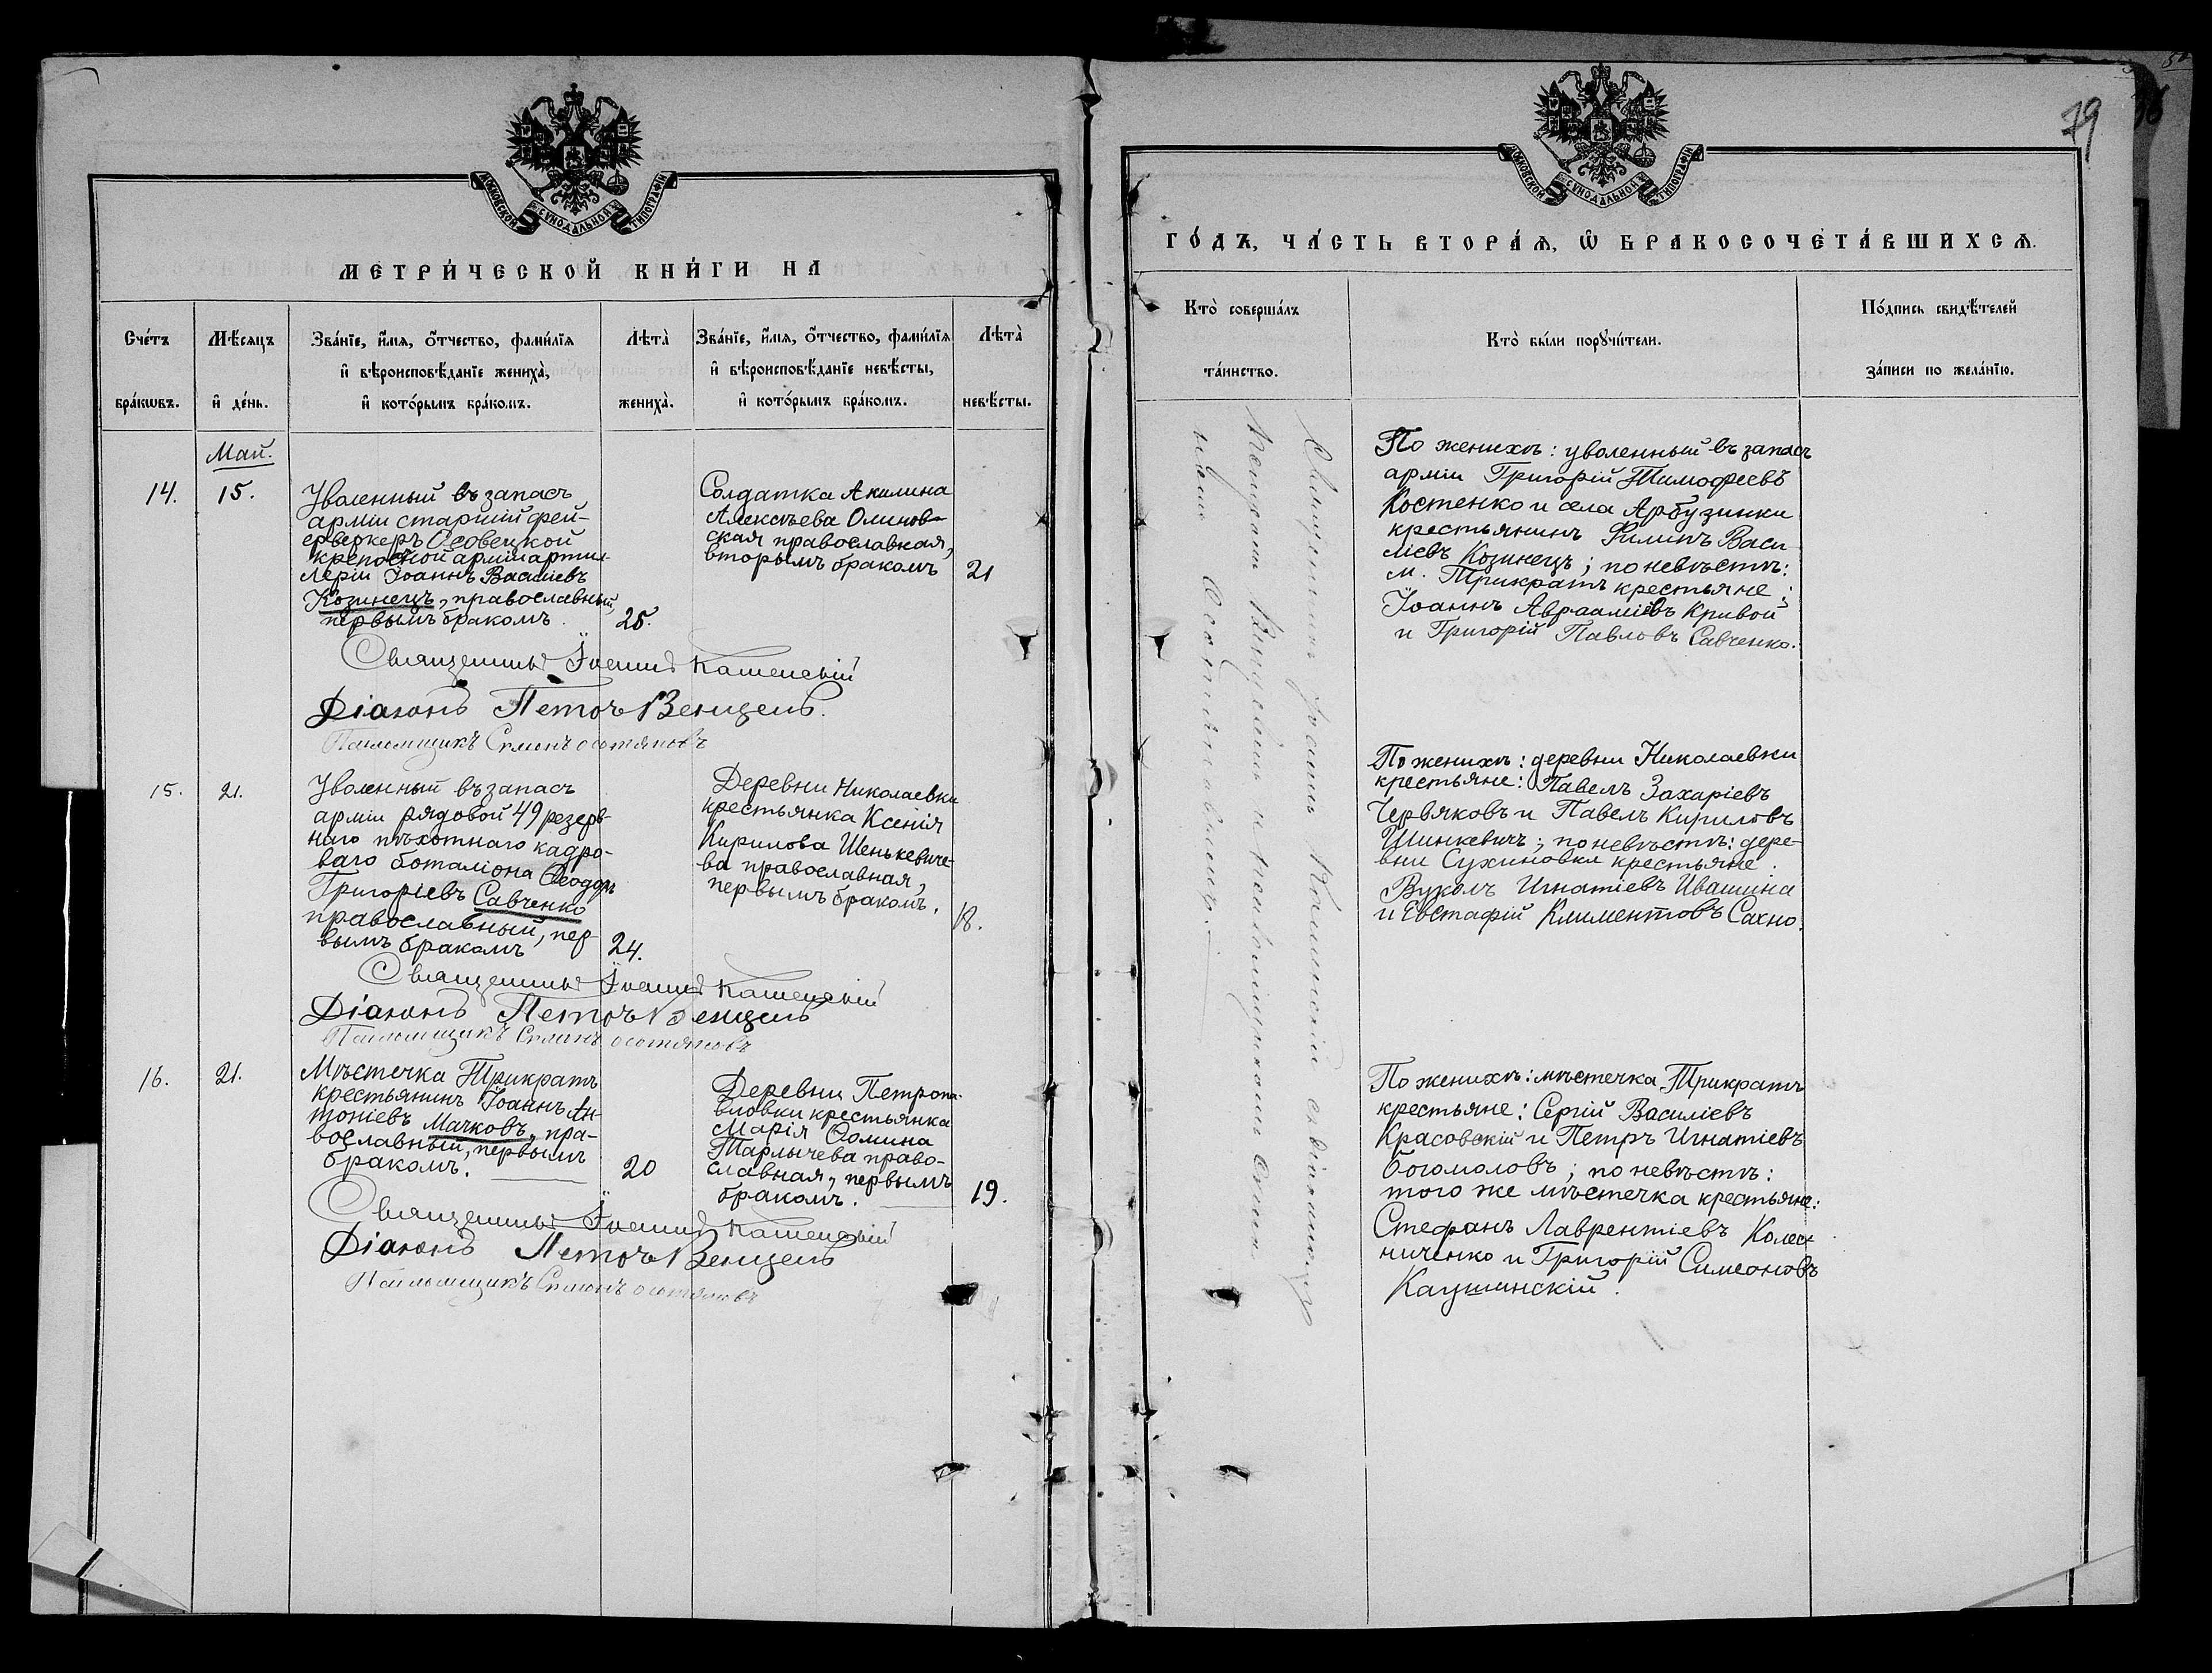 79
МОСКОВСКОЙ СѴНОДАЛЬНОЙ ТИПОГРАФІИ
МЕТРИ́ЧЕСКОЙ КНИ́ГИ НА
Сче́тъ бра́кѡвъ.
Мѣ́сяцъ и҆ де́нь.
Зва́нїе, и҆́мѧ, ѻ҆́тчество, фами́лїѧ
и҆ вѣроисповѣ́данїе жениха̀,
и҆ кото́рымъ бра́комъ.
Лѣта̀
жениха̀.
Зва́нїе, и҆́мѧ, ѻ҆́тчество, фами́лїѧ
и҆ вѣроисповѣ́данїе невѣ́сты,
и҆ кото́рымъ бра́комъ.
Лѣта̀
невѣ́сты.
Май.
14.
15.
Уволенный въ запасъ
арміи старшій фей-
ерверкеръ Осовецкой
крепостной арміи арти-
леріи Іоаннъ Василіевъ
Козинецъ, православный
первымъ бракомъ.
25.
Солдатка Акилина
Алексѣева Олинов-
ская православная,
вторымъ бракомъ
21
Священникъ Іоаннъ Каменскій
Діаконъ Петръ Венцель.
Псаломщикъ Семенъ Осотяновъ
15.
21.
Уволенный въ запасъ
арміи рядовой 49 резерв-
наго пѣхотнаго кадро-
ваго боталіона Ѳеодоръ
Григоріевъ Савченко
православный, пер-
вымъ бракомъ
24.
Деревни Николаевки
крестьянка Ксенія
Кирилова Шенькевиче-
ва православная,
первымъ бракомъ.
18.
Священникъ Іоаннъ Каменскій
Діаконъ Петръ Венцель
Псаломщикъ Семенъ Осотяновъ
16.
21.
Мѣстечка Трикратъ
крестьянинъ Іоаннъ Ан-
тоніевъ Мачковъ, пра-
вославный, первымъ
бракомъ.
20
Деревни Петропа-
вловки крестьянка
Марія Ѳомина
Тарлычева право-
славная, первымъ
бракомъ.
19.
Священникъ Іоаннъ Каменскій
Діаконъ Петръ Венцель
Псаломщикъ Семенъ Осотяновъ
МОСКОВСКОЙ СѴНОДАЛЬНОЙ ТИПОГРАФІИ
ГО́ДЪ, ЧА́СТЬ ВТОРА́Ѧ, Ѡ҆ БРАКОСОЧЕТА́ВШИХСѦ.
Кто̀ соверша́лъ
та́инство.
Кто̀ бы́ли порꙋчи́тели.
По́дпись свидѣ́телей
за́писи по жела́нїю.
Священникъ Іоаннъ Каменскій съ діакономъ
Петромъ Венцелемъ и псаломщикомъ Семе-
номъ Осотяновымъ.
По женихѣ: уволенный въ запасъ
арміи Григорій Тимофеевъ
Костенко и села Арбузинки
крестьянинъ Филипъ Васи-
ліевъ Козинецъ; по невѣстѣ:
м. Трикратъ крестьяне:
Іоаннъ Авраамівъ Кривой
и Григорій Павловъ Савченко.
По женихѣ: деревни Николаевки
крестьяне: Павелъ Захаріевъ
Червяковъ и Павелъ Кириловъ
Шинкевичъ; по невѣстѣ: дере-
вни Сухиновки крестьяне.
Вуколъ Игнатіевъ Ивашина
и Евстафій Климентовъ Сахно.
По женихѣ: мѣстечка Трикратъ
крестьяне: Сергій Василіевъ
Красовскій и Петръ Игнатіевъ
богомоловъ; по невѣстѣ:
того же мѣстечка крестьяне:
Стефанъ Лаврентіевъ Колес-
ниченко и Григорій Симеоновъ
Каушинскій.